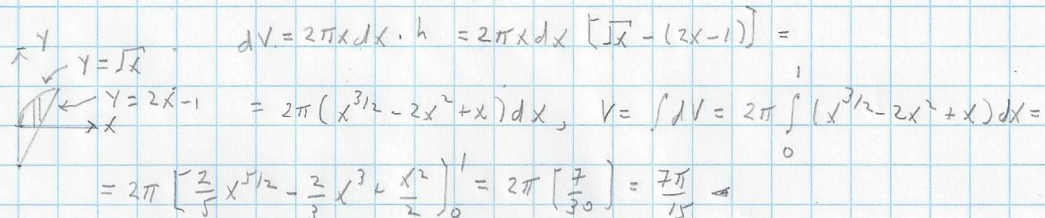 dV = 2πx dx · h = 2πx dx [√x - (2x-1)] =
Y
Y = √x
Y = 2x-1
x
= 2π(x^3/2 - 2x² + x)dx, V = ∫dV = 2π ∫₀¹ (x^3/2 - 2x² + x)dx =
= 2π [2/5 x^5/2 - 2/3 x³ + x²/2]₀¹ = 2π [7/30] = 7π/15